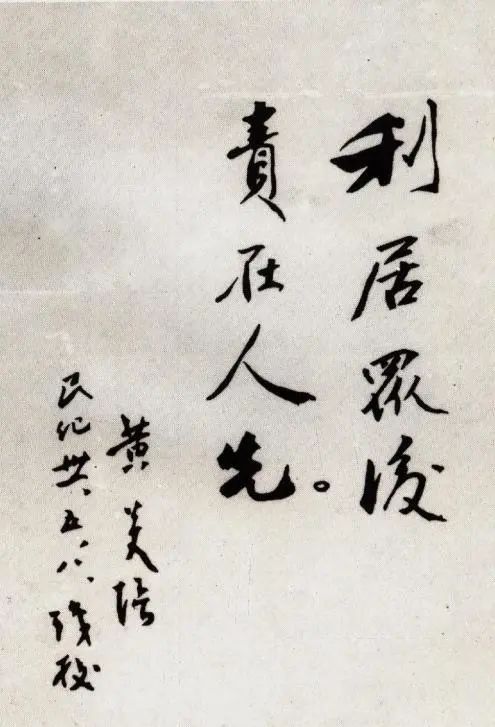 利居眾後
責在人先。
黃炎培
民紀卅、五、八、